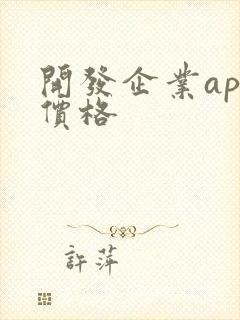 開發企業ap
價格
許萍